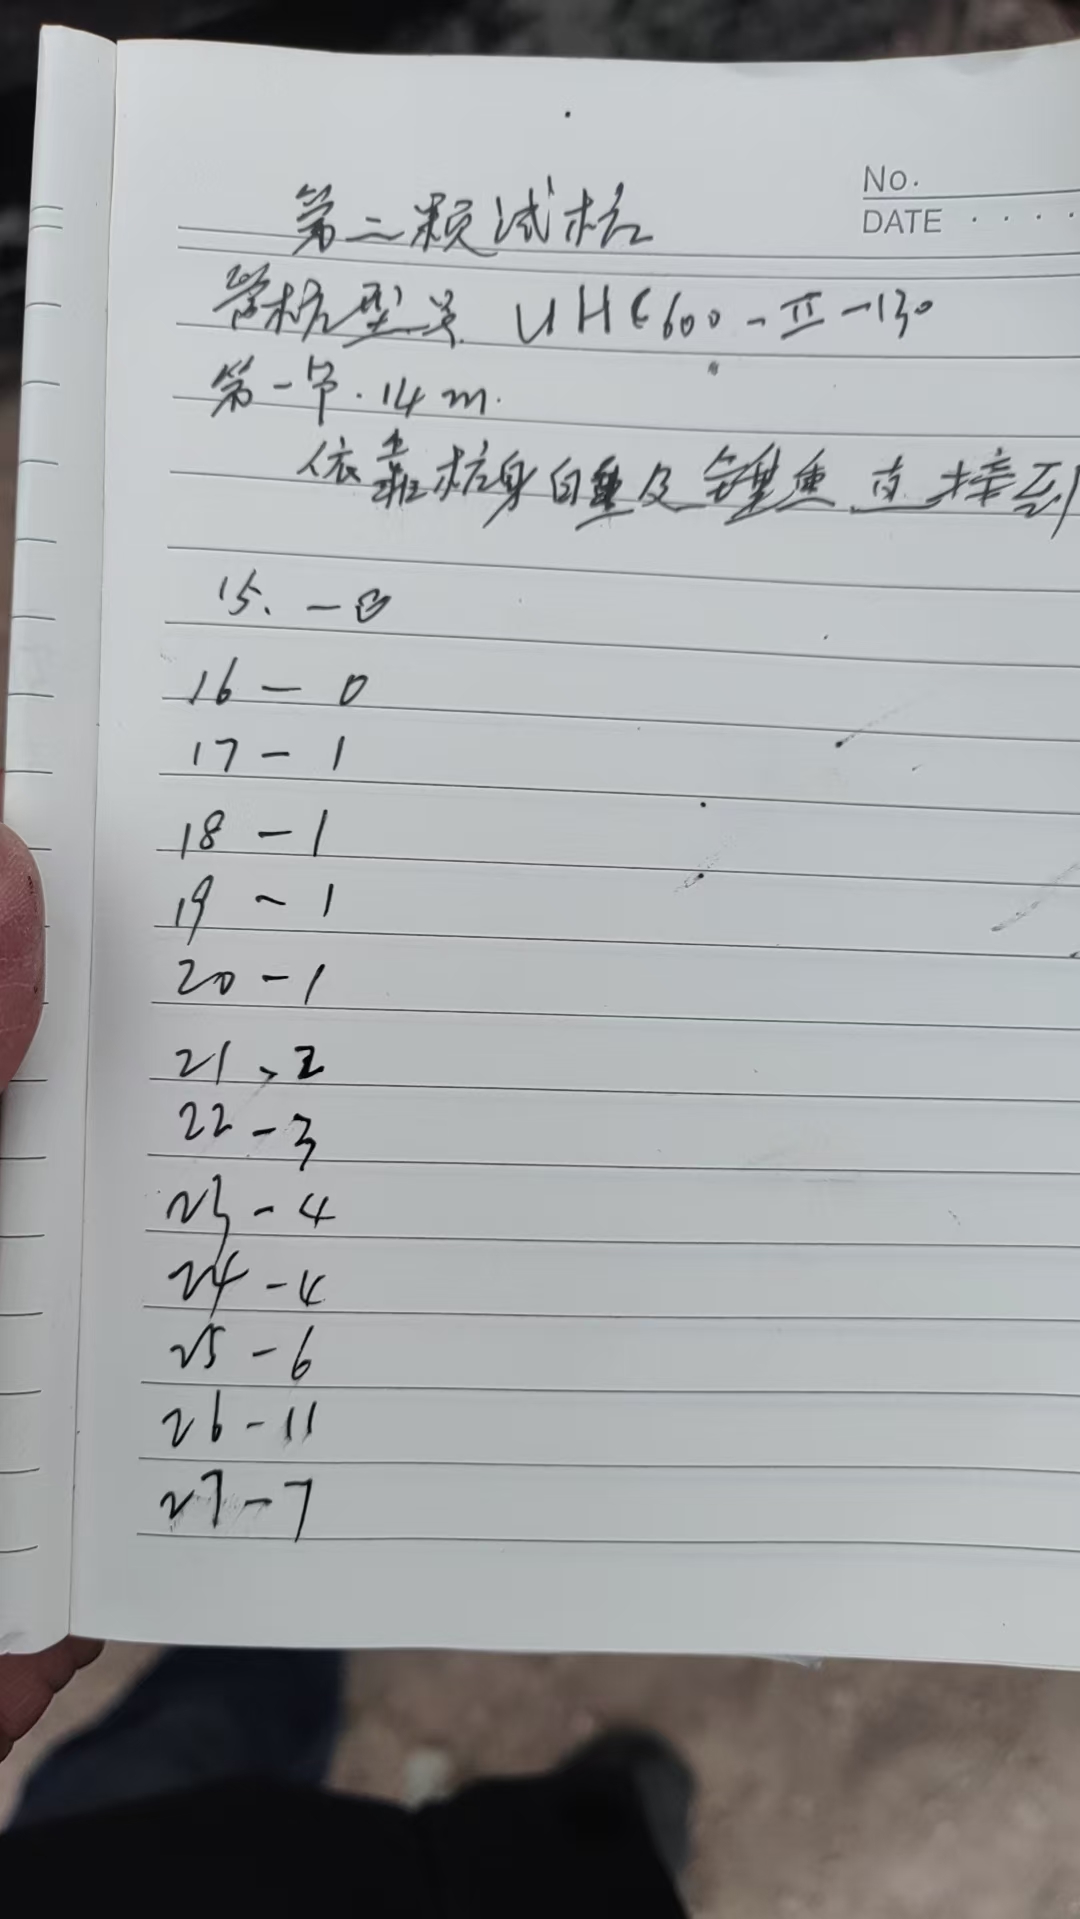 No.
DATE
第二颗试桩
管桩型号 UHC600-II-130
第一节.14m.
依靠桩身自重及锤重直接到
15.-0
16-0
17-1
18-1
19-1
20-1
21、2
22-3
23-4
24-4
25-6
26-11
27-7